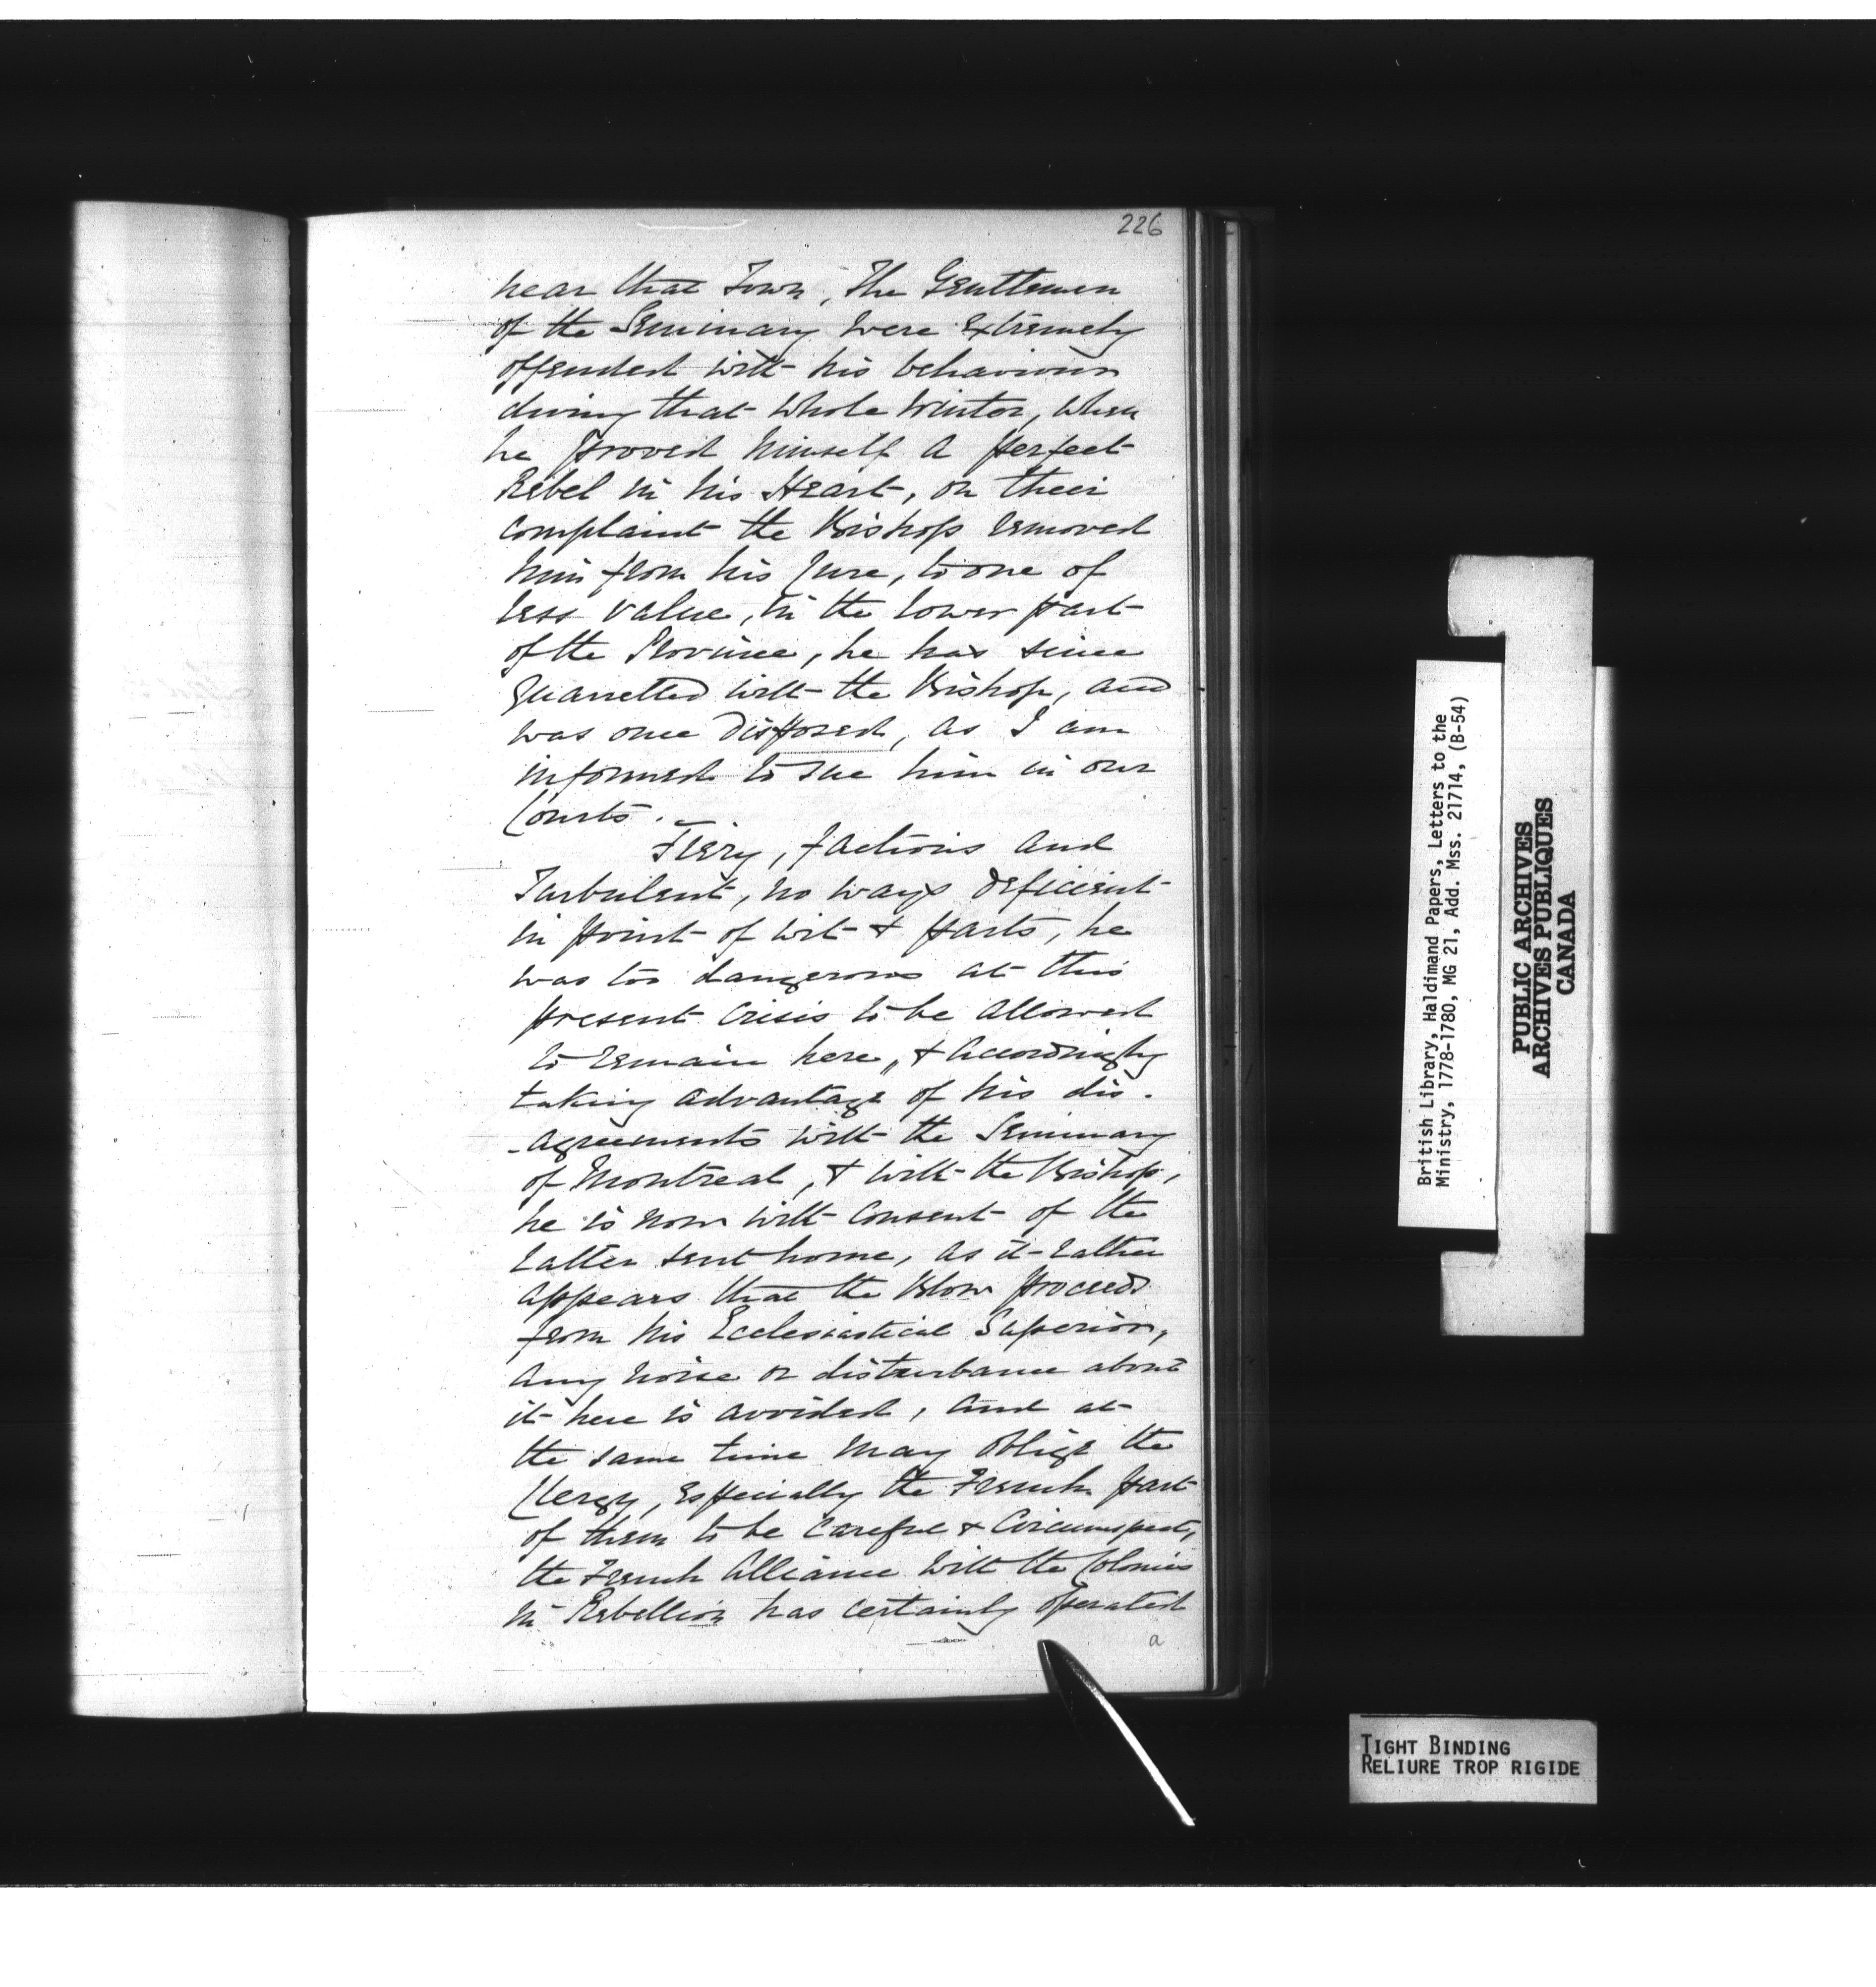 226
near that Town, The Gentlemen
of the Seminary were extremely
offended with his behaviour
during that whole Winter, when
he proved himself a perfect
Rebel in his Heart, on their
complaint the Bishop removed
him from his Cure, to one of
less value, in the lower part
of the Province, he has since
Quarrelled with the Bishop, and
was once disposed, as I am
informed to sue him in our
Courts.
Fiery, factious and
Turbulent, no ways deficient
in point of wit & parts, he
was too dangerous at this
present Crisis to be allowed
to remain here, & Accordingly
taking advantage of his dis-
-agreements with the Seminary
of Montreal, & with the Bishop,
he is now with consent of the
latter sent home, as it rather
appears that the Blow proceeds
from his Ecclesiastical Superior,
any noise or disturbance about
it here is avoided, and at
the same time may oblige the
Clergy, especially the French part
of them to be Careful & Circumspect,
the French Alliance with the Colonies
in Rebellion has certainly operated
a
British Library, Haldimand Papers, Letters to the
Ministry, 1778-1780, MG 21, Add. Mss. 21714, (B-54)
PUBLIC ARCHIVES
ARCHIVES PUBLIQUES
CANADA
TIGHT BINDING
RELIURE TROP RIGIDE